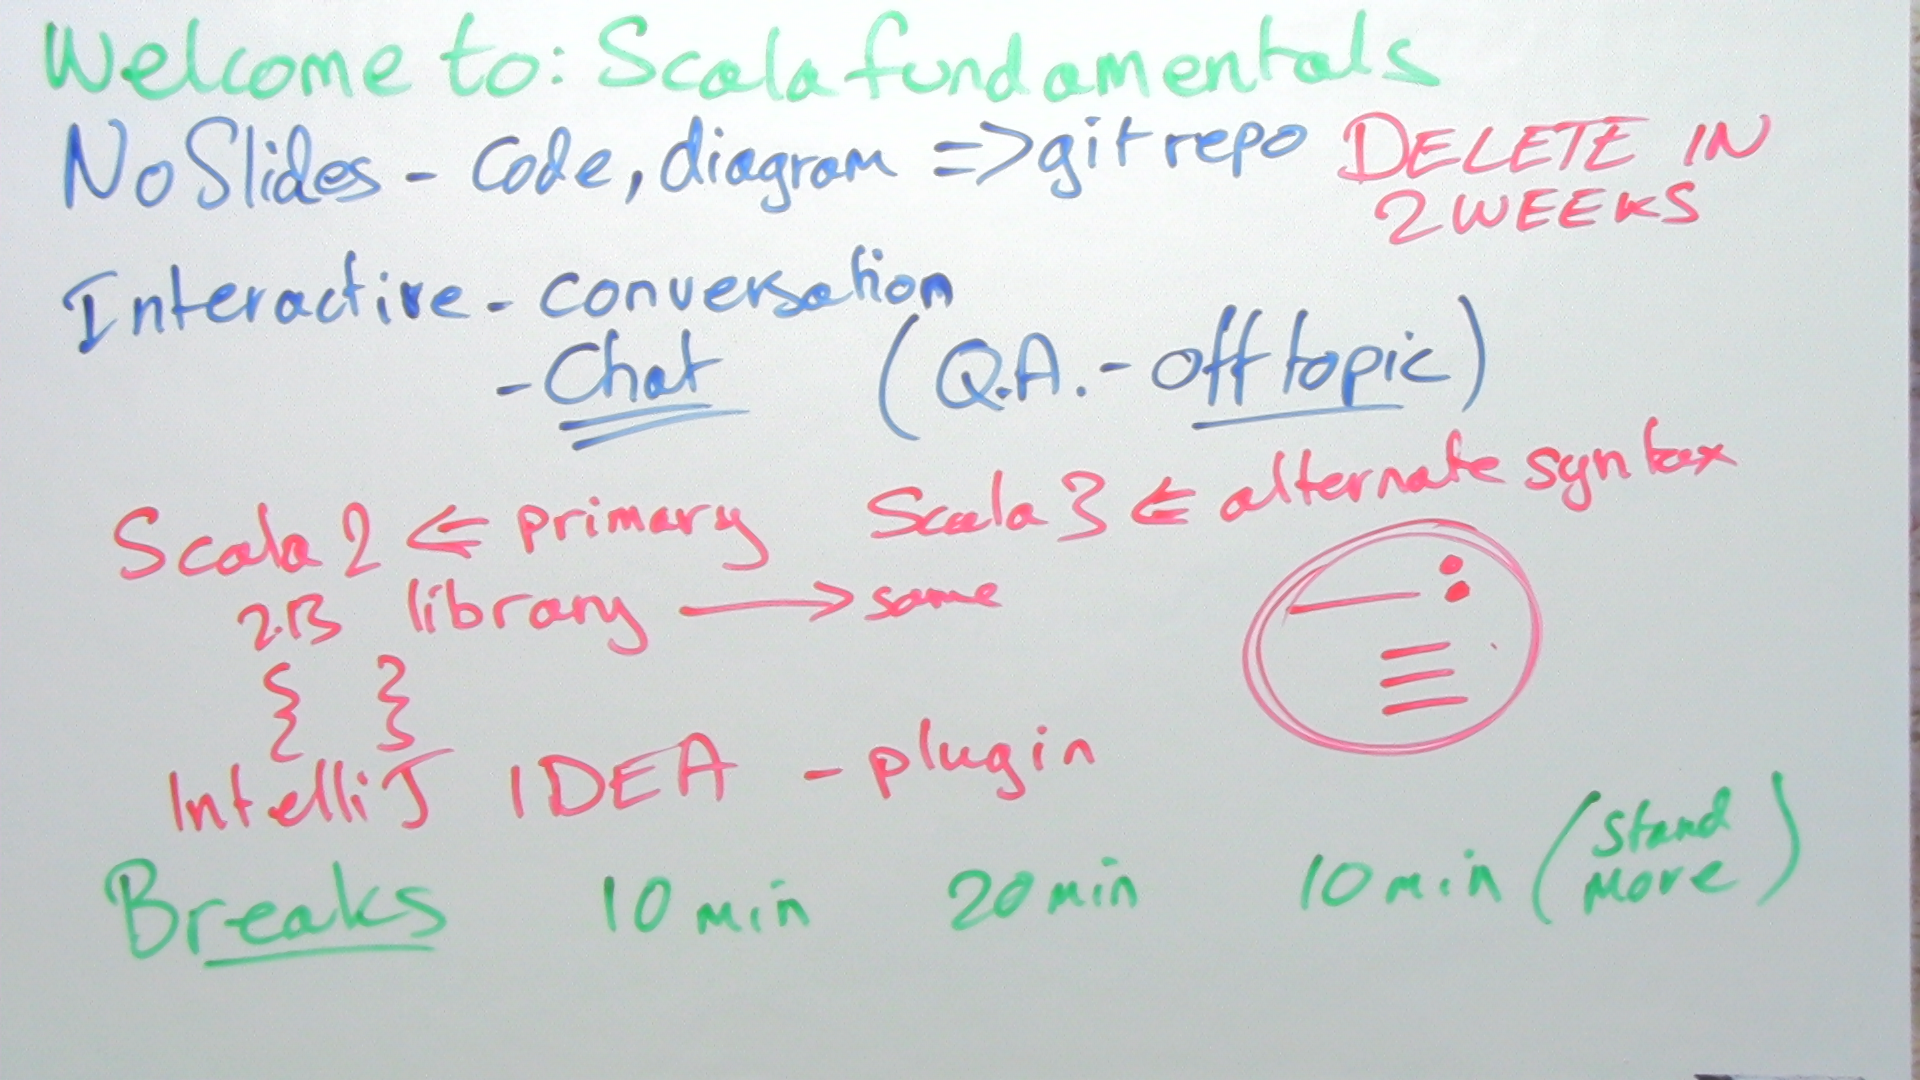 Welcome to: Scala fundamentals
No Slides - Code, diagram => git repo DELETE IN
2 WEEKS
Interactive - conversation
- Chat (Q.A. - off topic)
Scala 2 <= primary Scala 3 <= alternate syntax
2.13 library → same
{ }
IntelliJ IDEA - plugin
Breaks 10 min 20 min 10 min (Stand
Move)